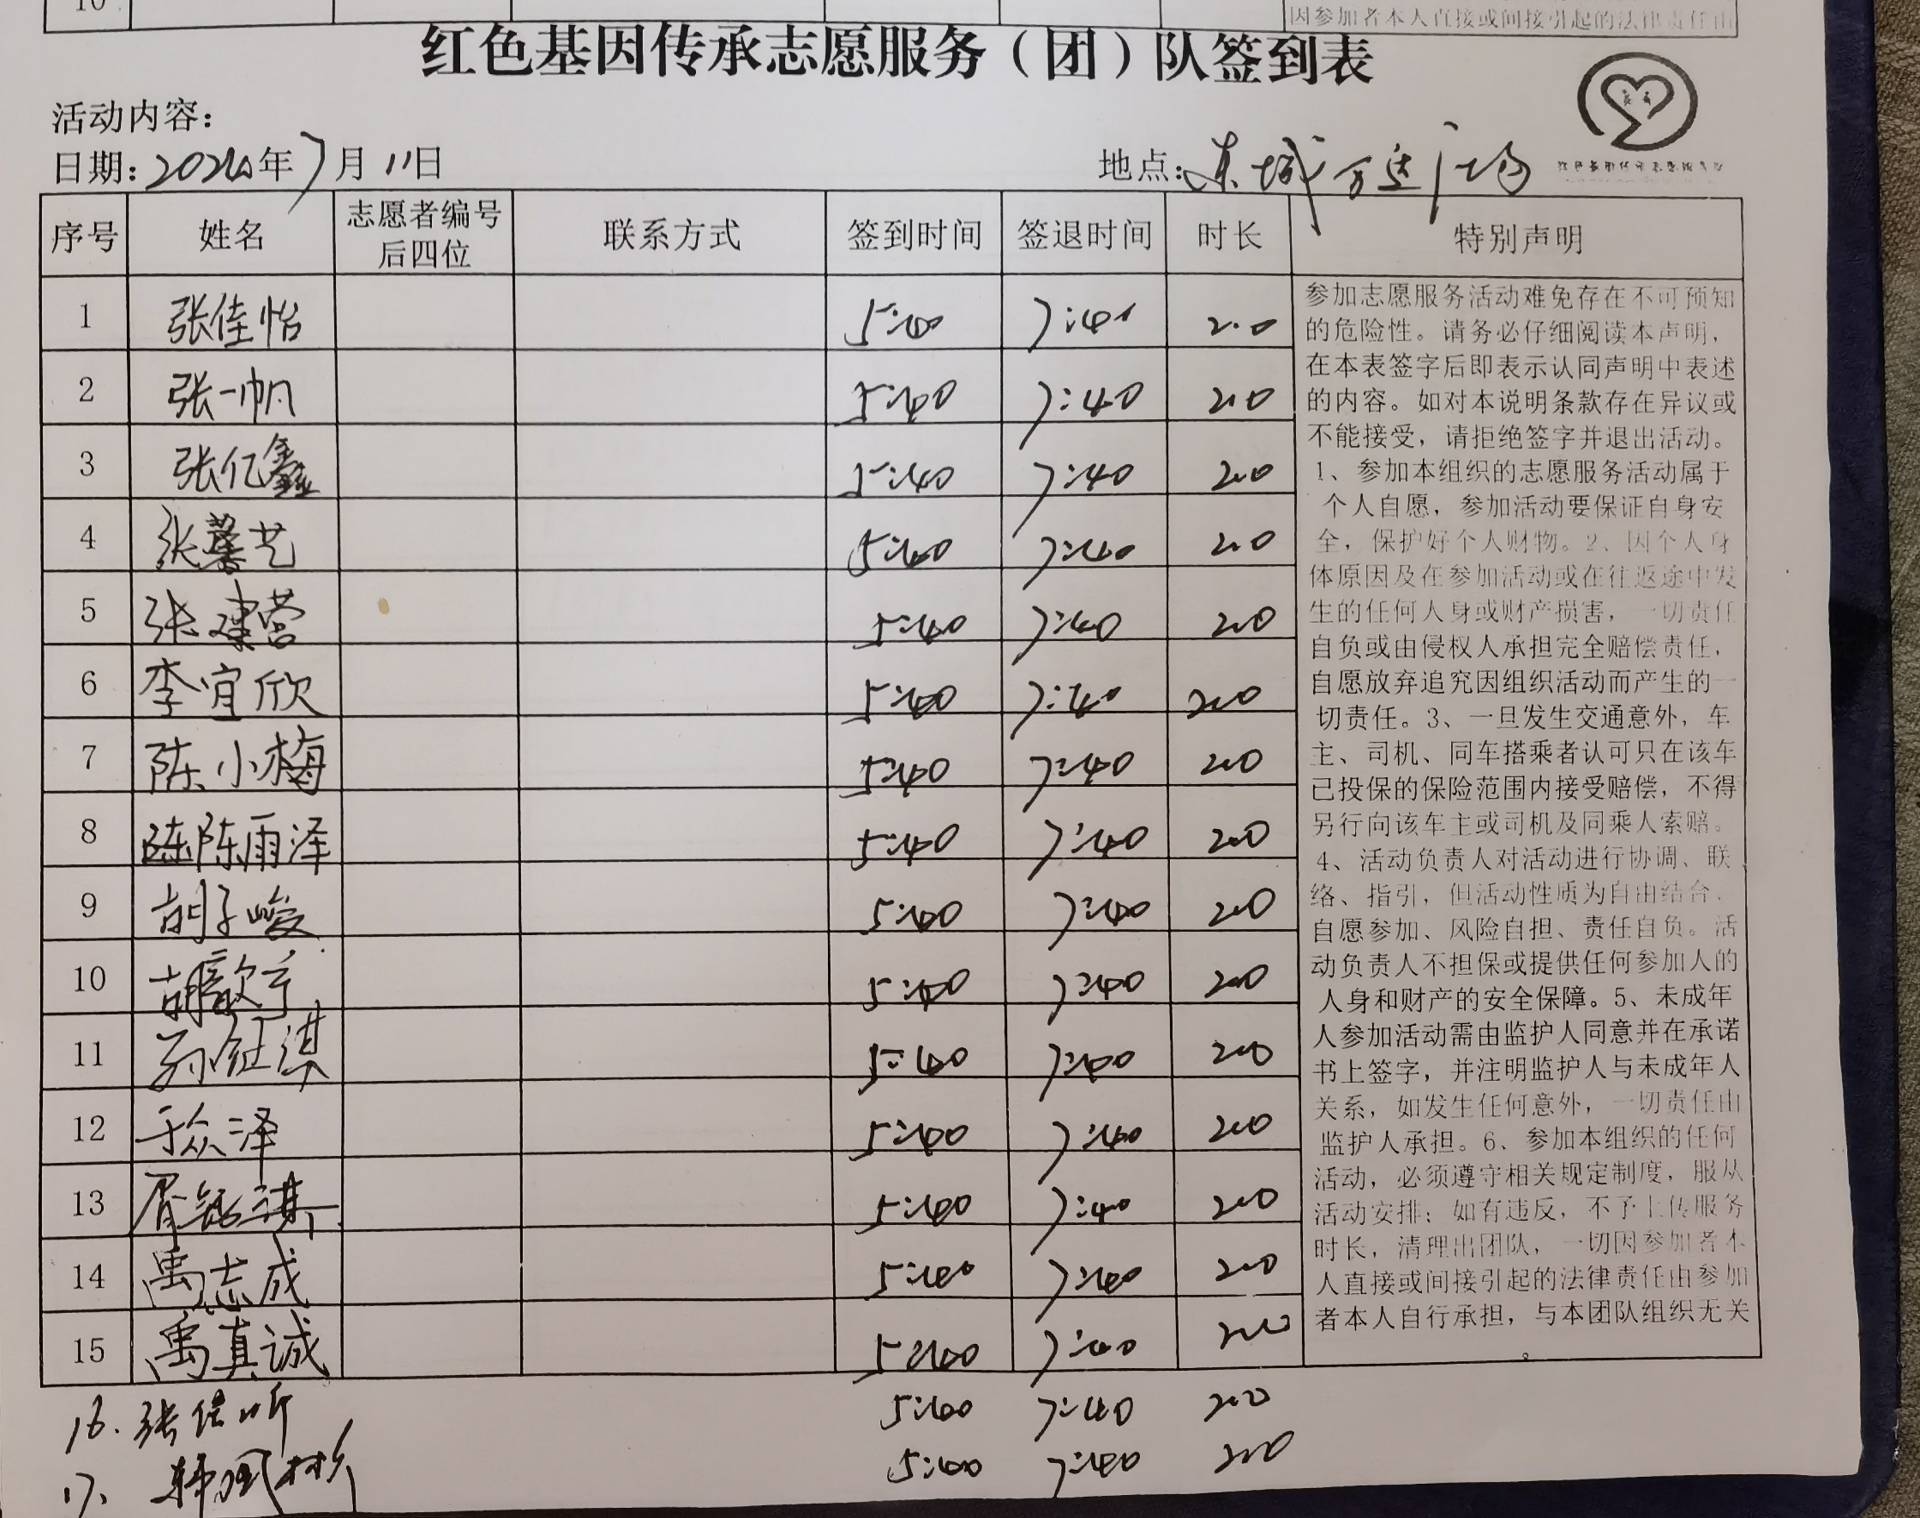 10
因参加者本人直接或间接引起的法律责任由
红色基因传承志愿服务（团）队签到表
活动内容：
日期：2024年7月11日
地点：东城万达广场
序号 姓名 志愿者编号后四位 联系方式 签到时间 签退时间 时长 特别声明
1 张佳怡 5:40 7:40 2.0
2 张一帆 5:40 7:40 2.0
3 张亿鑫 5:40 7:40 2.0
4 张馨艺 5:40 7:40 2.0
5 张建营 5:40 7:40 2.0
6 李宜欣 5:40 7:40 2.0
7 陈小梅 5:40 7:40 2.0
8 陈陈雨泽 5:40 7:40 2.0
9 胡子峻 5:40 7:40 2.0
10 胡歆宁 5:40 7:40 2.0
11 5:40 7:40 2.0
12 于众泽 5:40 7:40 2.0
13 5:40 7:40 2.0
14 禹志成 5:40 7:40 2.0
15 禹真诚 5:40 7:40 2.0
16. 张佳昕 5:40 7:40 2.0
17、 5:40 7:40 2.0
参加志愿服务活动难免存在不可预知
的危险性。请务必仔细阅读本声明，
在本表签字后即表示认同声明中表述
的内容。如对本说明条款存在异议或
不能接受，请拒绝签字并退出活动。
1、参加本组织的志愿服务活动属于
个人自愿，参加活动要保证自身安
全，保护好个人财物。2、因个人身
体原因及在参加活动或在往返途中发
生的任何人身或财产损害，一切责任
自负或由侵权人承担完全赔偿责任，
自愿放弃追究因组织活动而产生的一
切责任。3、一旦发生交通意外，车
主、司机、同车搭乘者认可只在该车
已投保的保险范围内接受赔偿，不得
另行向该车主或司机及同乘人索赔。
4、活动负责人对活动进行协调、联
络、指引，但活动性质为自由结合、
自愿参加、风险自担、责任自负。活
动负责人不担保或提供任何参加人的
人身和财产的安全保障。5、未成年
人参加活动需由监护人同意并在承诺
书上签字，并注明监护人与未成年人
关系，如发生任何意外，一切责任由
监护人承担。6、参加本组织的任何
活动，必须遵守相关规定制度，服从
活动安排；如有违反，不予上传服务
时长，清理出团队，一切因参加者本
人直接或间接引起的法律责任由参加
者本人自行承担，与本团队组织无关